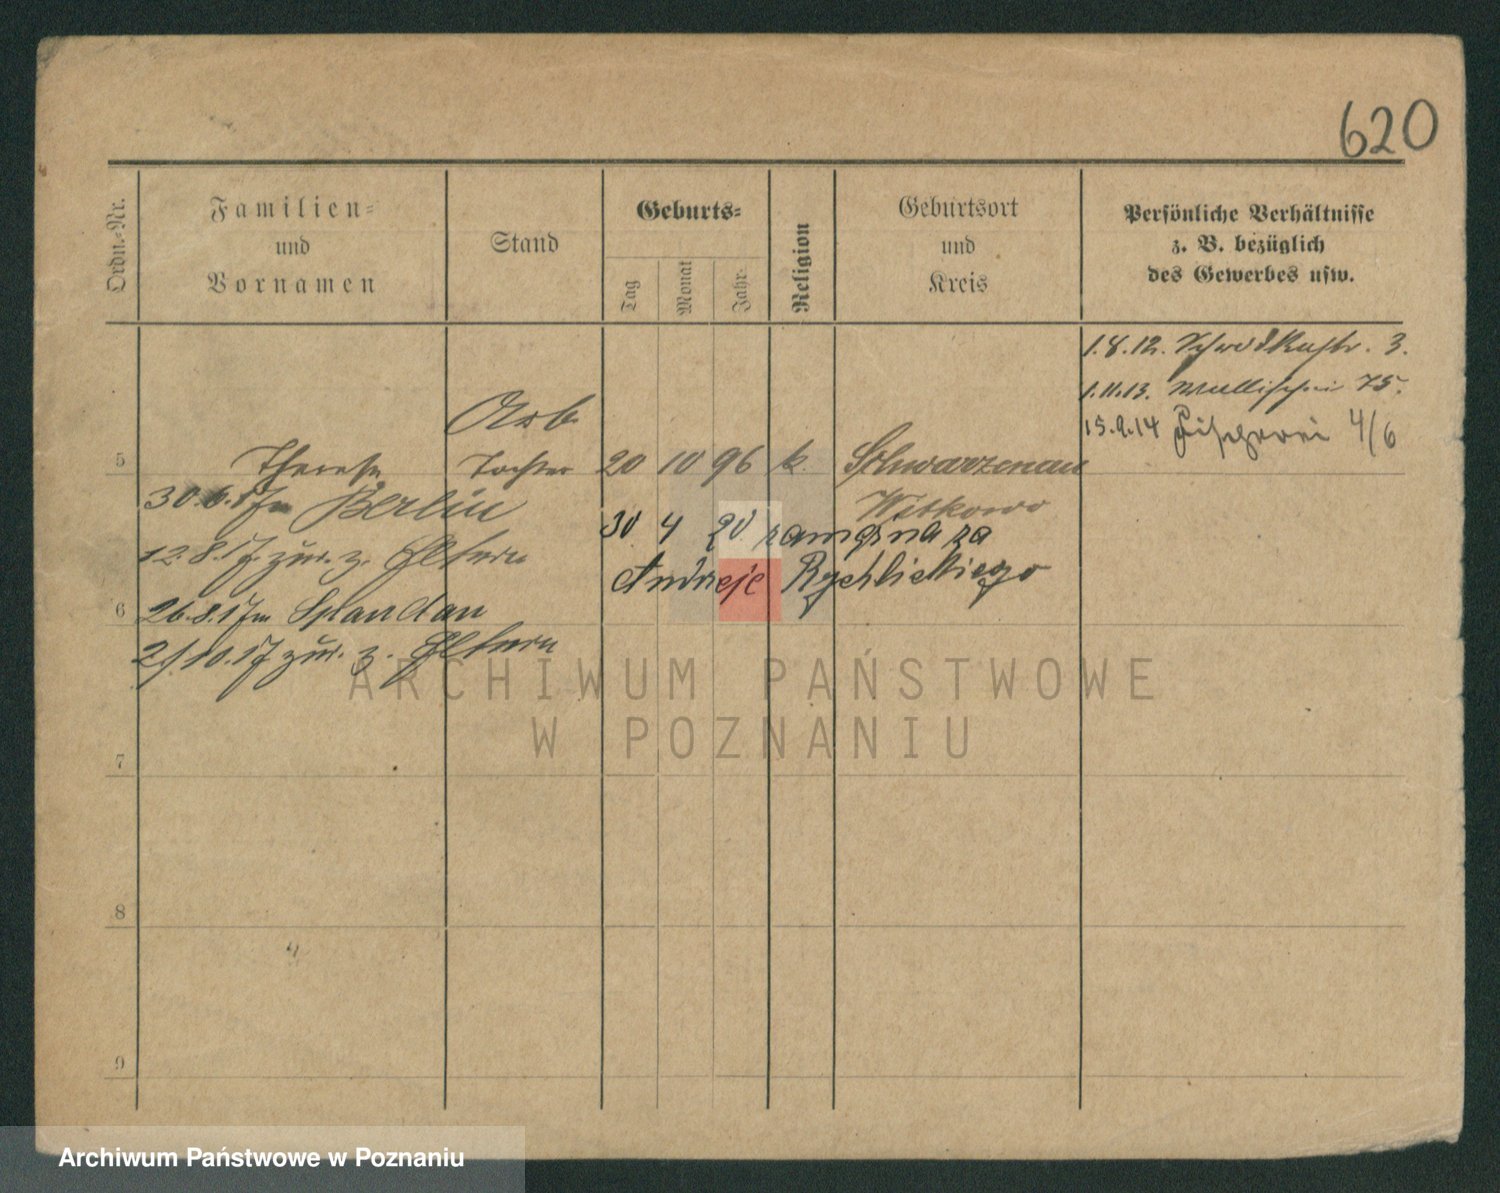 620
Ordn.-Nr.
Familien-
und
Vornamen
Stand
Geburts-
Tag
Monat
Jahr
Religion
Geburtsort
und
Kreis
Persönliche Verhältnisse
z. B. bezüglich
des Gewerbes usw.
1.8.12. 3.
1.11.13. Wallischei 75.
15.9.14 Fischerei 4/6
Arb.
5 Therese Tochter 20 10 96 k. Schwarzenau
Witkowo
30.6.17 n Berlin
30 4 20 zamężna za
12.8.17 zur. z. Eltern
Andrzeje Rychlickiego
6 26.8.17 n Spandau
21/10.17 zur. z. Eltern
ARCHIWUM PAŃSTWOWE
W POZNANIU
7
8
9
Archiwum Państwowe w Poznaniu